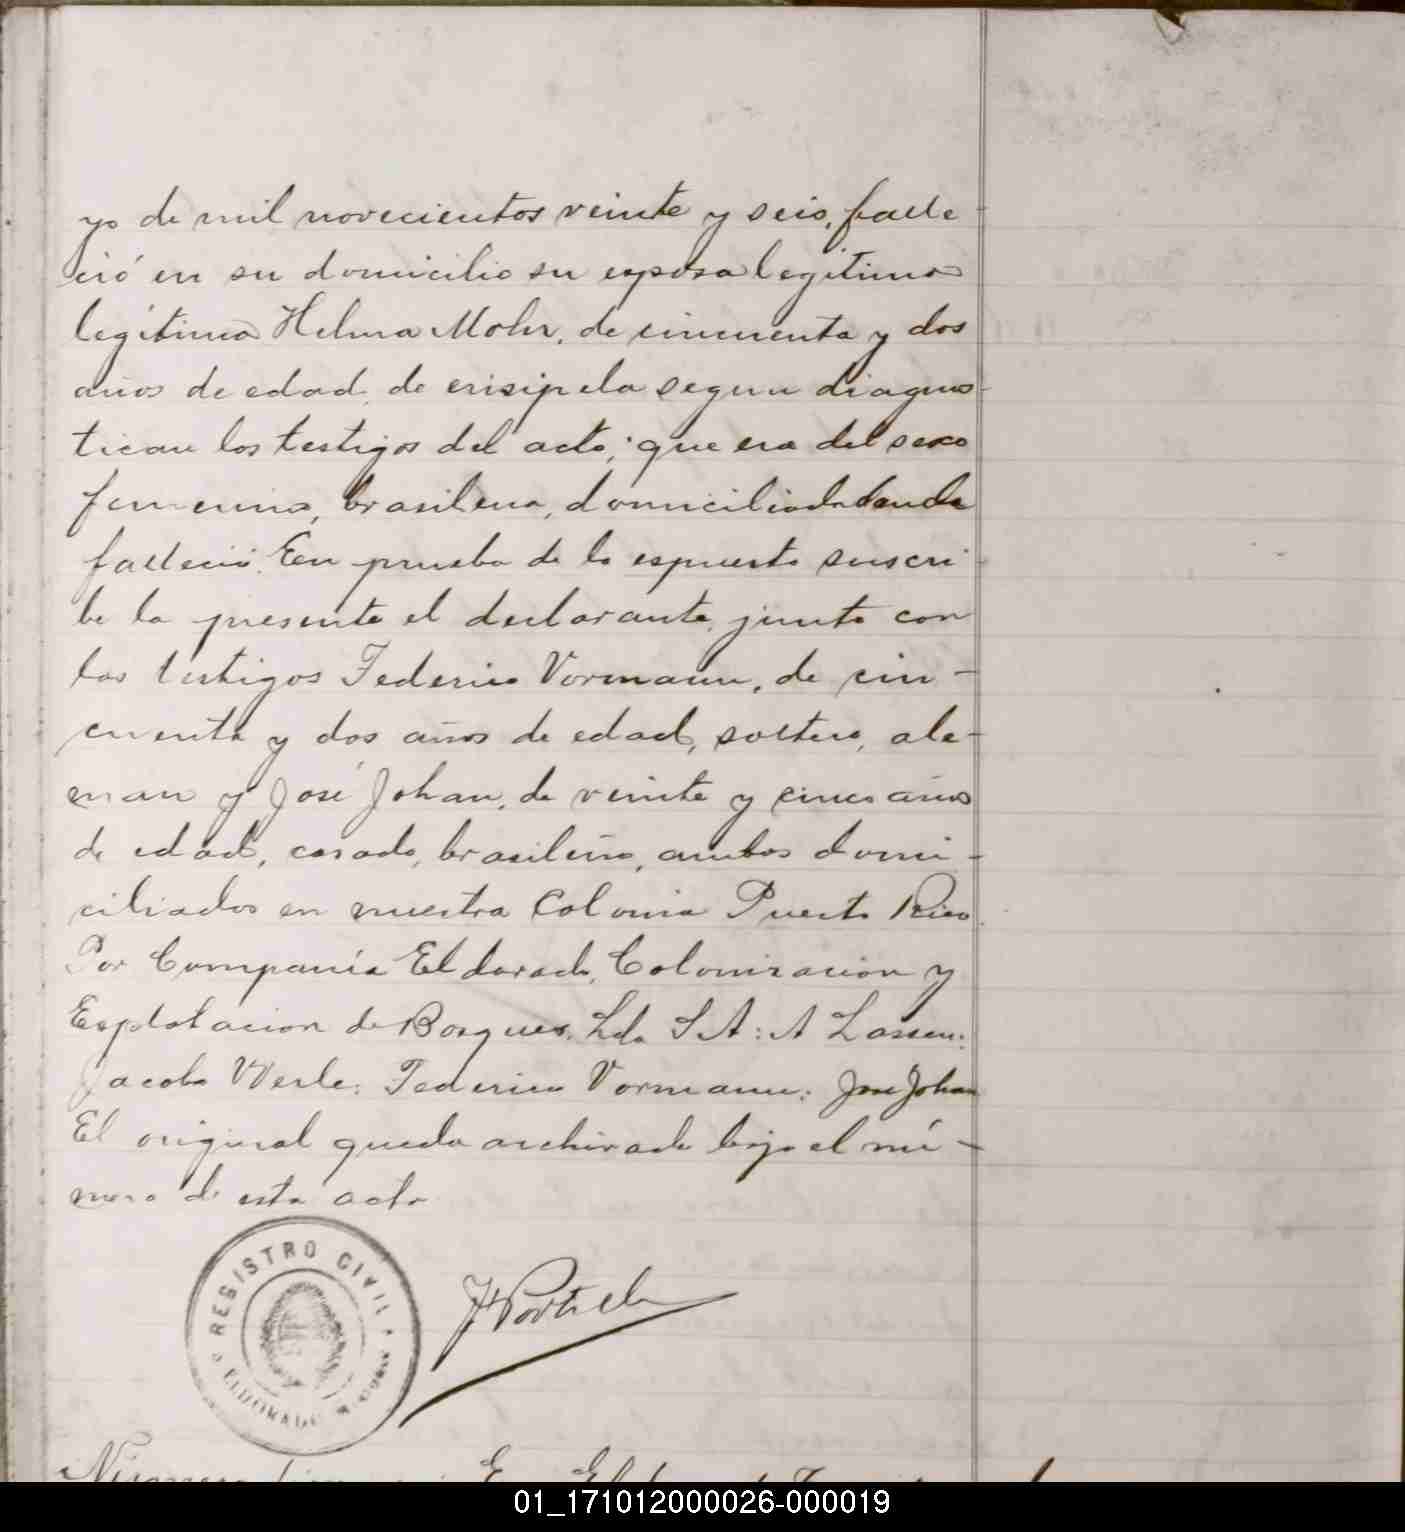 yo de mil novecientos veinte y seis, falle
ció en su domicilio su esposa legítima
legítima Helma Mohr, de cincuenta y dos
años de edad, de erisipela segun diagnos-
tican los testigos del acto; que era del sexo
femenino, brasilena, domiciliada donde
falleció. En prueba de lo espuesto suscri-
be la presente el declarante, junto con
los testigos Federico Vormann, de cin-
cuenta y dos años de edad, soltero, ale-
man y José Johan, de veinte y cinco años
de edad, casado, brasileño, ambos domi-
ciliados en nuestra Colonia Puerto Rico.
Por Compania Eldorado, Colonizacion y
Esplotacion de Bosques. Lda S A: A Lassen:
Jacobo Werle: Federico Vormann: José Johan
El original queda archivado bajo el nú-
mero de esta acta
REGISTRO CIVIL
ELDORADO
J Portela
01_171012000026-000019